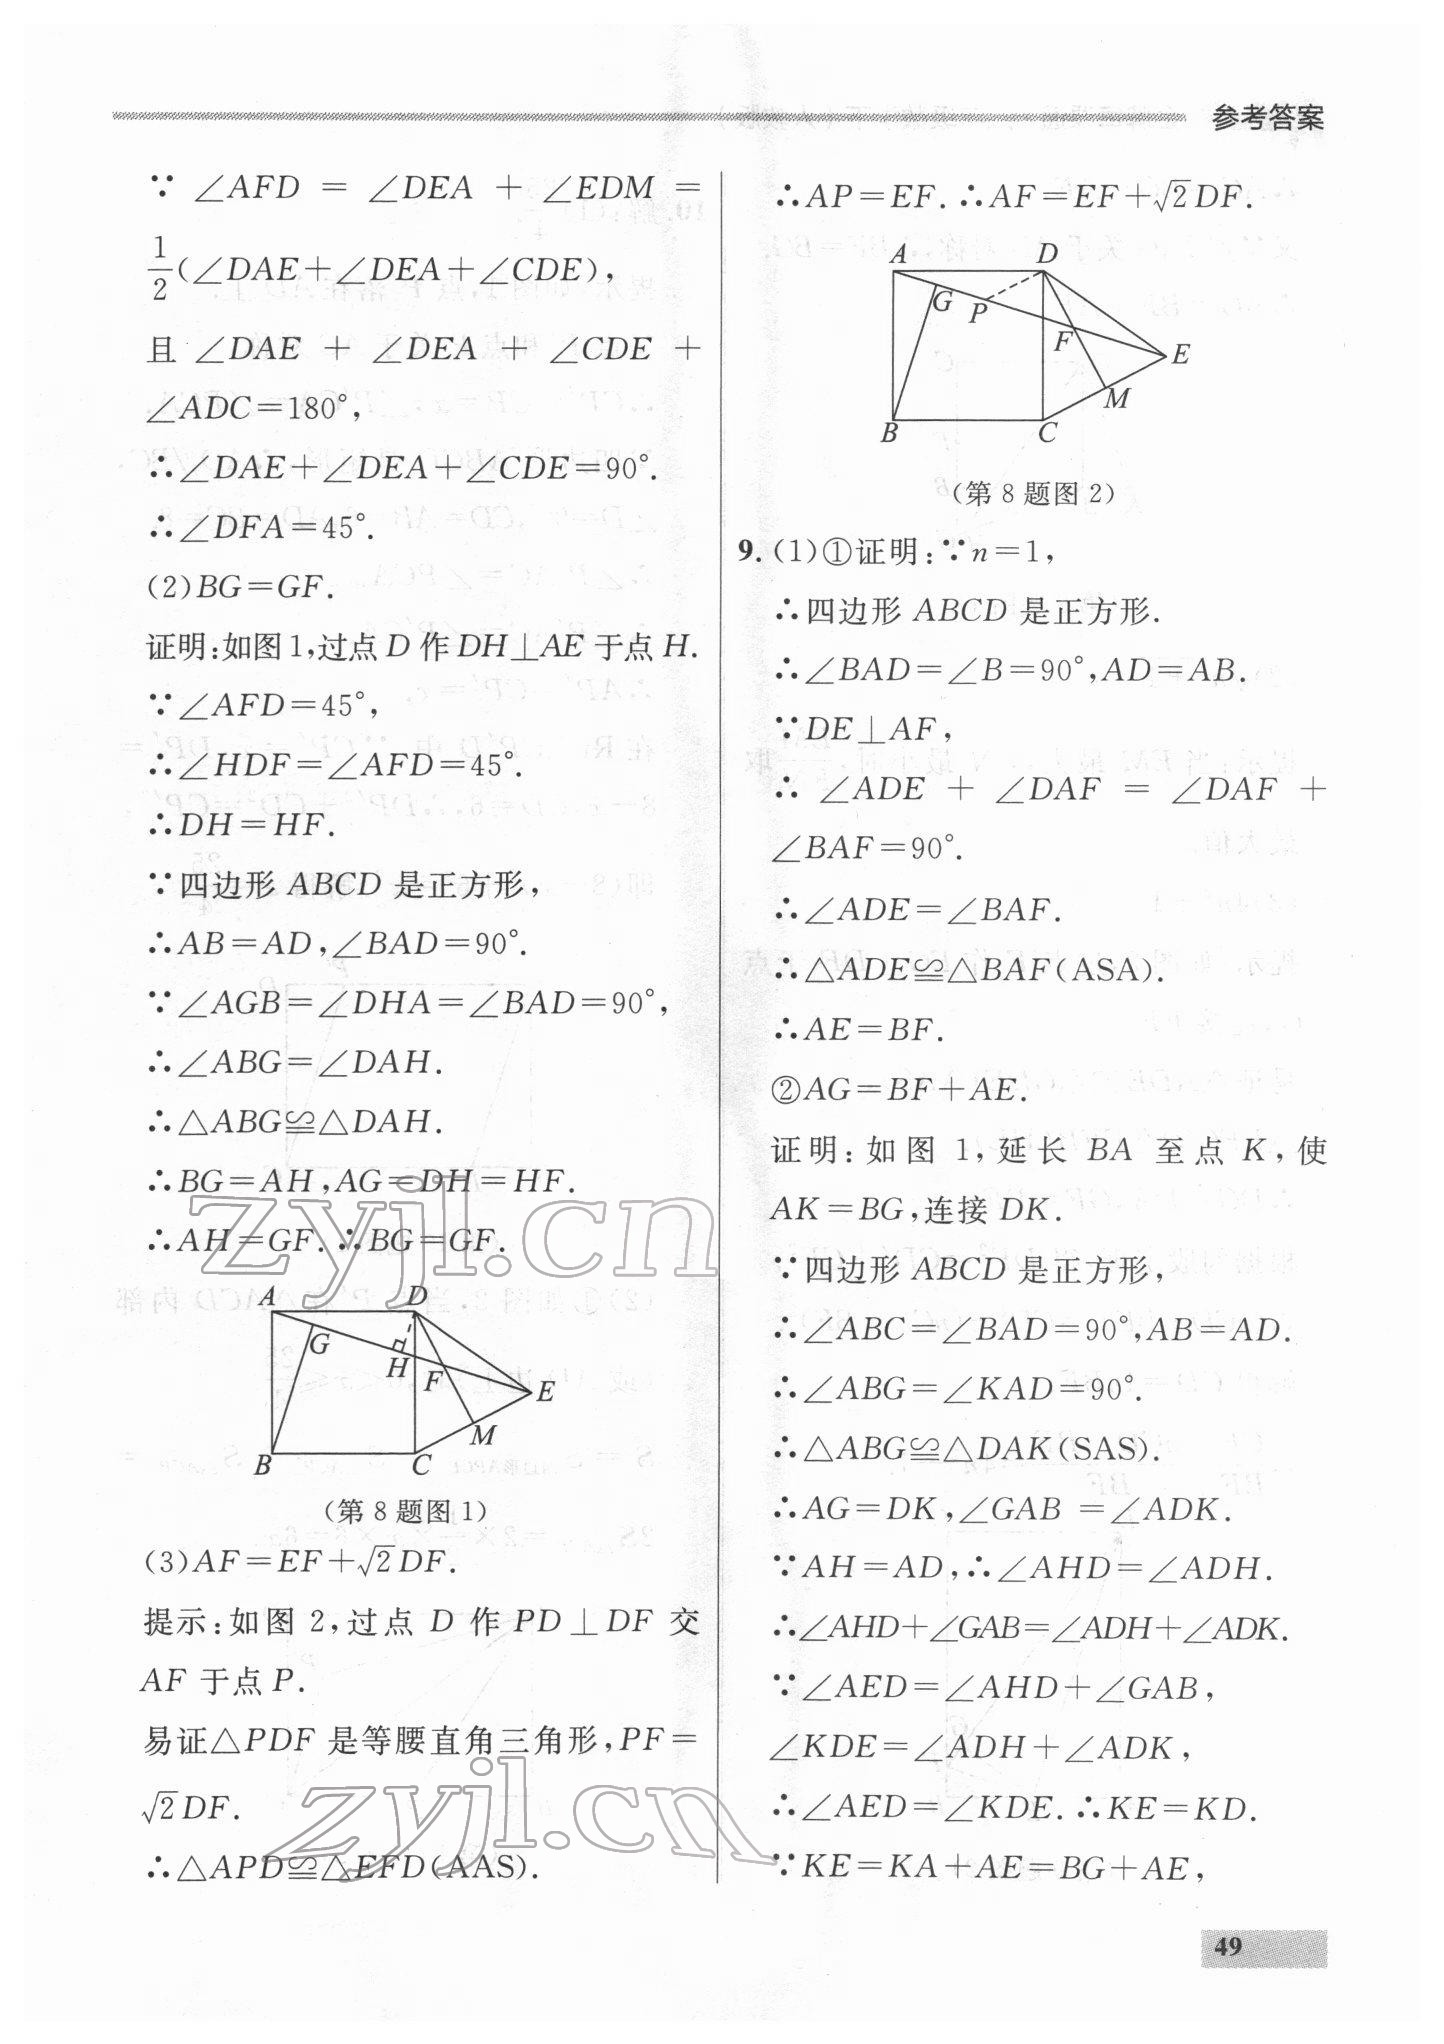 参考答案
∵ ∠AFD = ∠DEA + ∠EDM =
1/2(∠DAE+∠DEA+∠CDE),
且 ∠DAE + ∠DEA + ∠CDE +
∠ADC=180°,
∴∠DAE+∠DEA+∠CDE=90°.
∴∠DFA=45°.
(2)BG=GF.
证明:如图1,过点D作DH⊥AE于点H.
∵∠AFD=45°,
∴∠HDF=∠AFD=45°.
∴DH=HF.
∵四边形ABCD是正方形,
∴AB=AD,∠BAD=90°.
∵∠AGB=∠DHA=∠BAD=90°,
∴∠ABG=∠DAH.
∴△ABG≌△DAH.
∴BG=AH,AG=DH=HF.
∴AH=GF.∴BG=GF.
A D
G
H F
E
M
B C
(第8题图1)
(3)AF=EF+√2DF.
提示:如图2,过点D作PD⊥DF交
AF于点P.
易证△PDF是等腰直角三角形,PF=
√2DF.
∴△APD≌△EFD(AAS).
∴AP=EF.∴AF=EF+√2DF.
A D
G P
F
E
M
B C
(第8题图2)
9.(1)①证明:∵n=1,
∴四边形ABCD是正方形.
∴∠BAD=∠B=90°,AD=AB.
∵DE⊥AF,
∴ ∠ADE + ∠DAF = ∠DAF +
∠BAF=90°.
∴∠ADE=∠BAF.
∴△ADE≌△BAF(ASA).
∴AE=BF.
②AG=BF+AE.
证明:如图1,延长BA至点K,使
AK=BG,连接DK.
∵四边形ABCD是正方形,
∴∠ABC=∠BAD=90°,AB=AD.
∴∠ABG=∠KAD=90°.
∴△ABG≌△DAK(SAS).
∴AG=DK,∠GAB =∠ADK.
∵AH=AD,∴∠AHD=∠ADH.
∴∠AHD+∠GAB=∠ADH+∠ADK.
∵∠AED=∠AHD+∠GAB,
∠KDE=∠ADH+∠ADK,
∴∠AED=∠KDE.∴KE=KD.
∵KE=KA+AE=BG+AE,
zyjl.cn
zyjl.cn
49